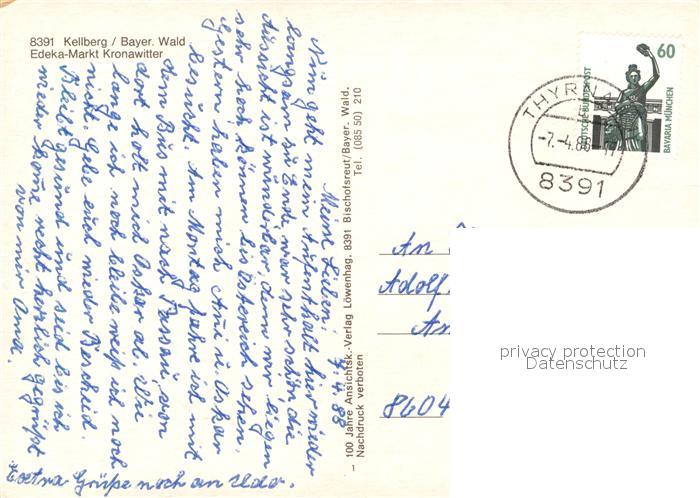 8391 Kellberg / Bayer. Wald
Edeka-Markt Kronawitter
7.4.88
Meine Lieben!
Nun geht mein Aufenthalt hier wieder
langsam zu Ende, war sehr schön die
Aussicht ist wunderbar, denn wir liegen
sehr hoch können bis Österreich sehen.
Gestern haben mich Anni u. Oskar
besucht. Am Montag fahre ich mit
dem Bus mit nach Passau, von
dort holt mich Oskar ab. Wie
lange ich noch bleibe weiß ich noch
nicht. Gebe euch wieder Bescheid.
Bleibt gesund und seid bis ich
wieder komme recht herzlich gegrüßt
von mer Oma.
Extra Grüße noch an Udo.
100 Jahre Ansichtsk.-Verlag Löwenhag, 8391 Bischofsreut/Bayer. Wald.
Nachdruck verboten
Tel. (085 50) 210
1
60
DEUTSCHE BUNDESPOST
BAVARIA MÜNCHEN
THYRNAU
-7.-4.88-17
8391
An
Adolf
Am
8604
privacy protection
Datenschutz